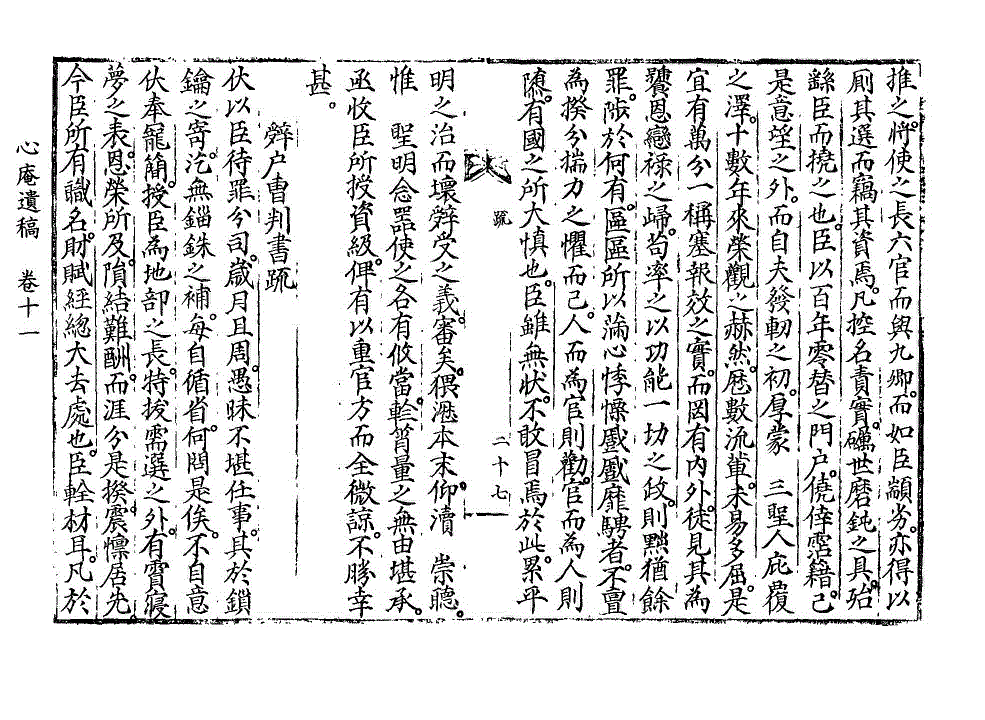 推之將使之長六官而與九卿而如臣顓劣亦得以
厠其選而竊其資焉凡控名責實礪世磨鈍之具殆
繇臣而撓之也臣以百年零替之門戶僥倖霑籍已
是意望之外而自夫發軔之初厚蒙 三聖人庇覆
之澤十數年來榮觀之赫然歷數流輩未易多屈是
宜有萬分一稱塞報效之實而罔有內外徒見其為
饕恩戀祿之歸苟率之以功能一切之政則黜猶餘
罪陟於何有區區所以淪心悸懍蹙蹙靡騁者不亶
為揆分揣力之懼而已人而為官則勸官而為人則
隳有國之所大慎也臣雖無狀不敢冒焉於此累平
疏
二十七
明之治而壞辭受之義審矣猥瀝本末仰瀆 崇聽
惟 聖明念器使之各有攸當斡筲量之無由堪承
亟收臣所授資級俾有以重官方而全微諒不勝幸
甚
辭户曹判書疏
伏以臣待罪分司歲月且周愚昧不堪任事其於鎖
鑰之寄汔無錙銖之補每自循省何閥是俟不自意
伏奉寵簡授臣為地部之長特拔需選之外有實寢
夢之表恩榮所及隕結難酬而涯分是揆震懍居先
今臣所有職名財賦經總大去處也臣輇材耳凡於
心庵遺稿 卷十一